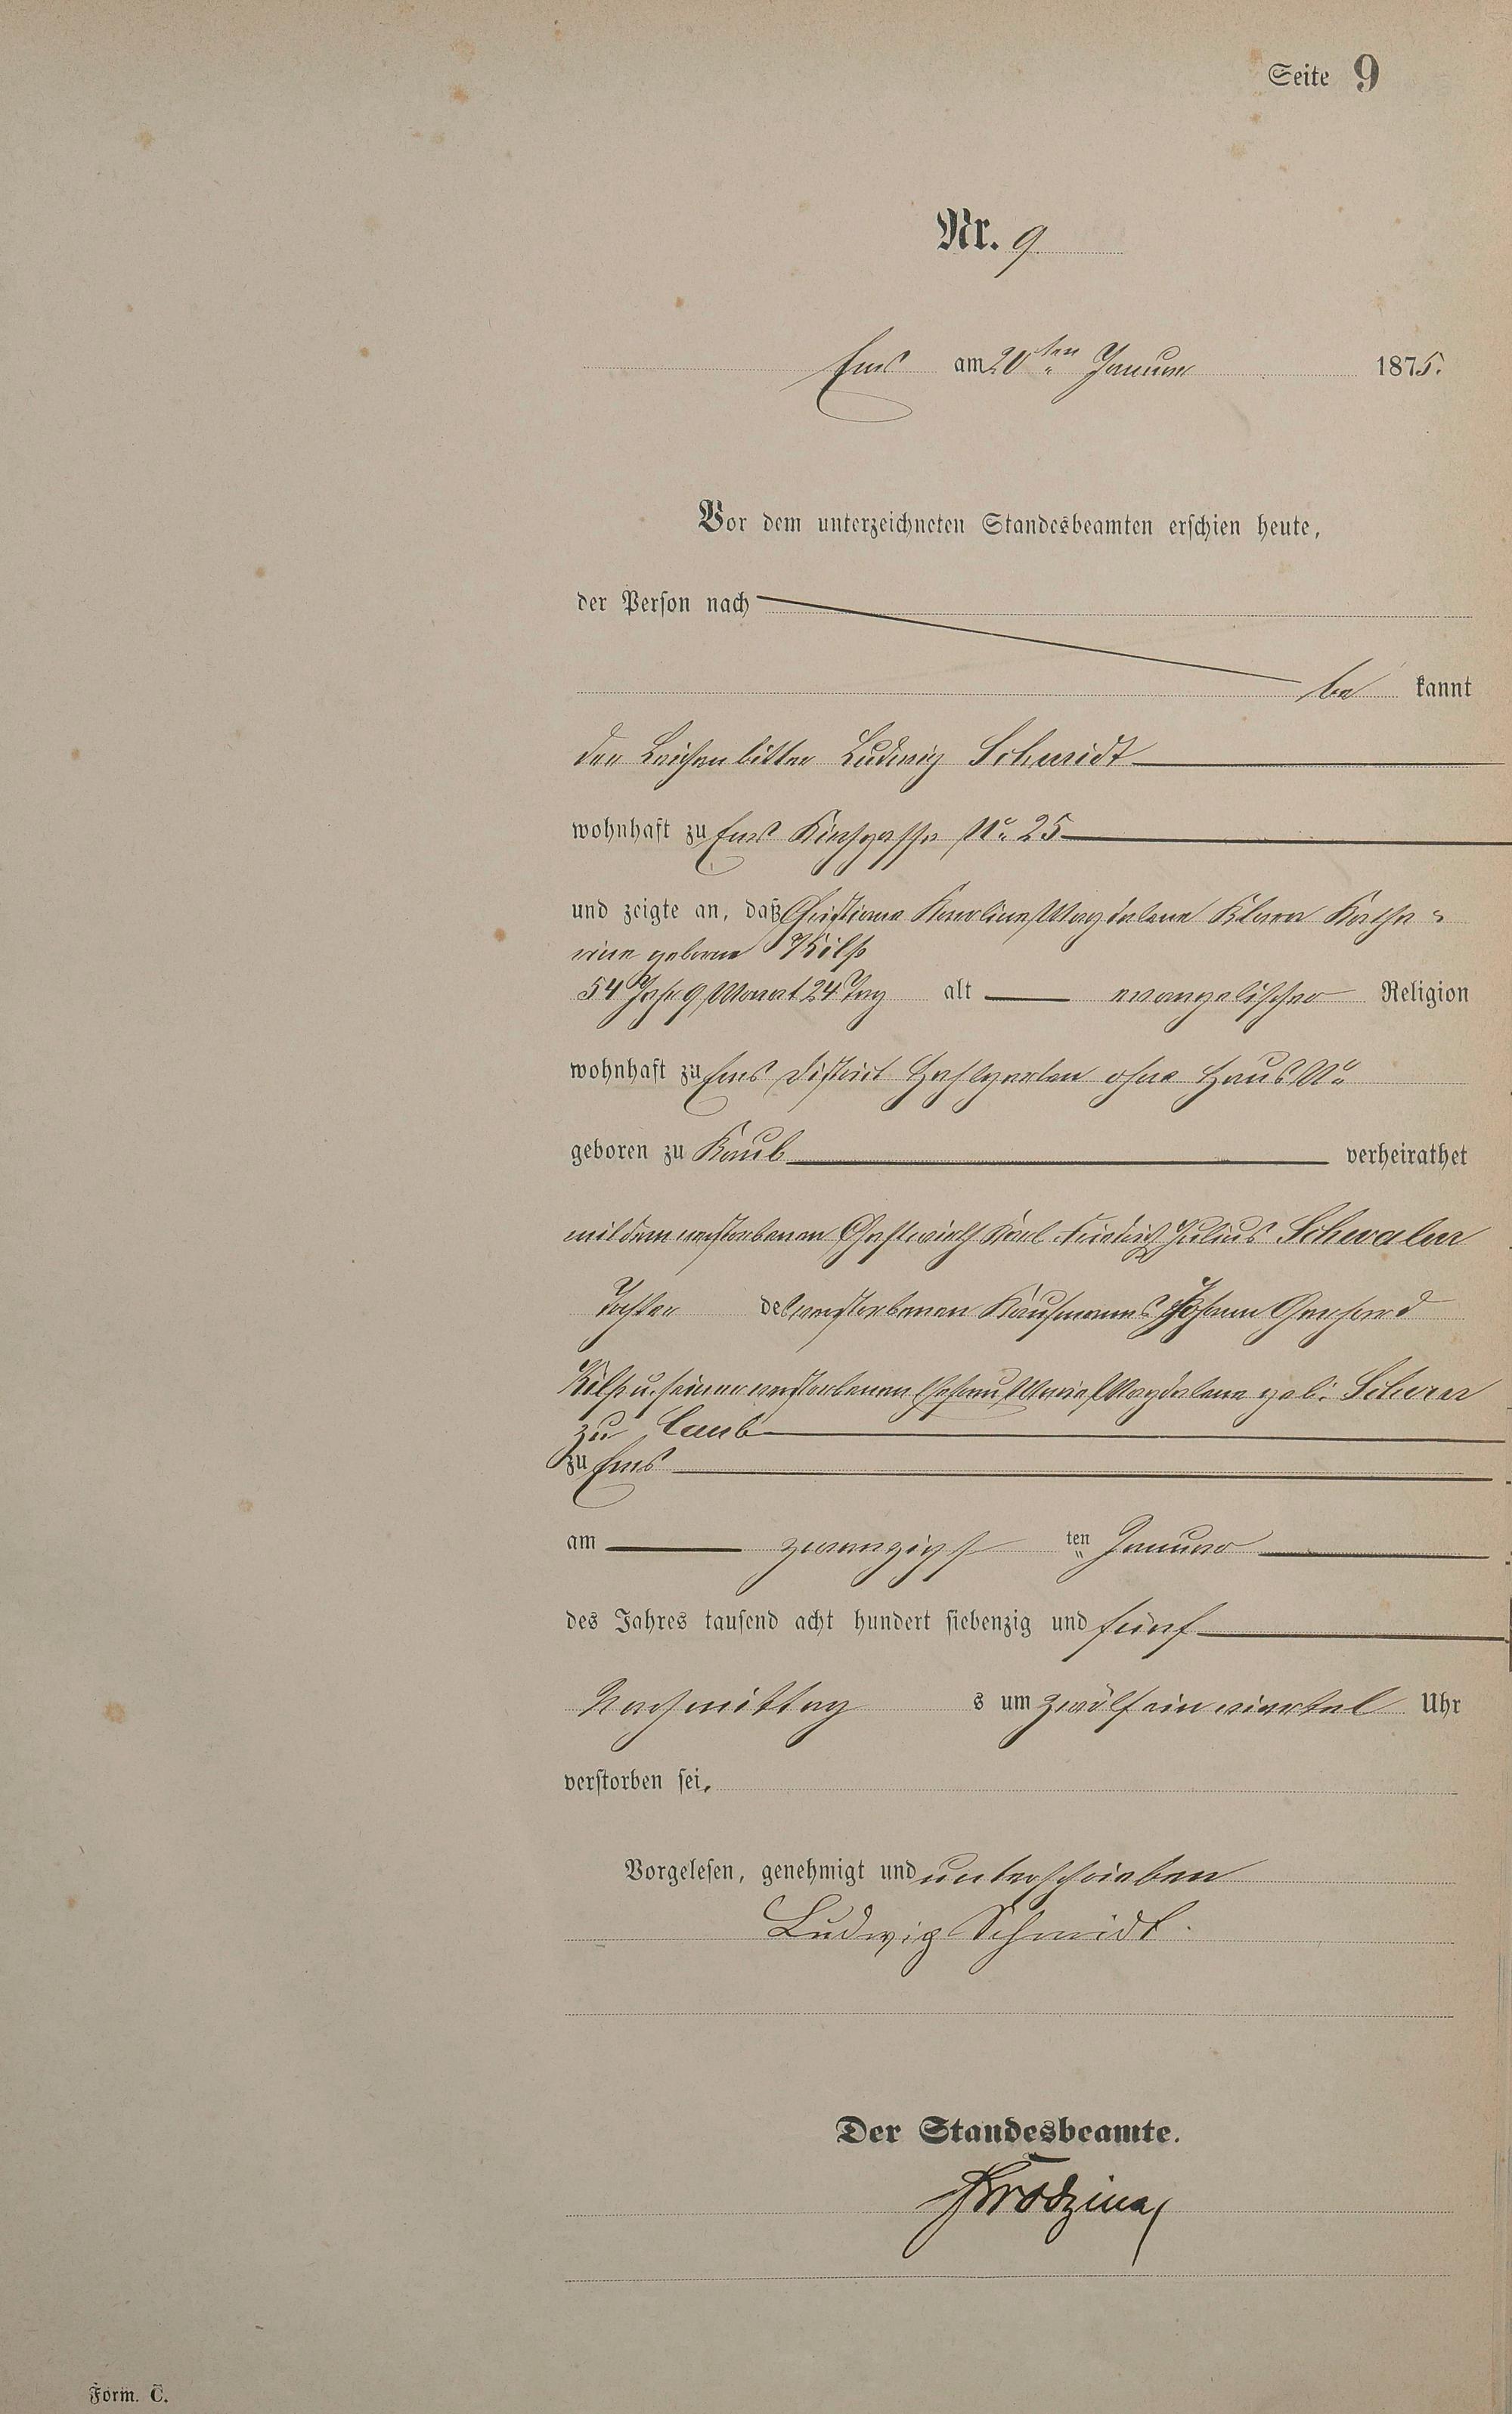 Seite 9
Nr. 9
Ems am 20ten Januar 1875.
Vor dem unterzeichneten Standesbeamten erschien heute,
der Person nach
be kannt
der Leichenbitter Ludwig Schmidt
wohnhaft zu Ems Kirchgasse No 25
und zeigte an, daß Christiane Karoline Magdalene Klara Katha-
rine geborne Kilp
54 Jahr 9 Monat 24 Tag alt evangelischer Religion
wohnhaft zu Ems District ohne Haus No
geboren zu Kaub verheirathet
mit dem verstorbenen Gastwirth Karl Friedrich Julius Schwalm
Tochter des verstorbenen Kaufmannes Johann Gerhard
Kilp u. seiner verstorbenen Ehefrau Maria Magdalena geb:
zu Caub
zu Ems
am zwanzigst ten Januar
des Jahres tausend acht hundert siebenzig und fünf
Nachmittag s um zwölf ein viertel Uhr
verstorben sei.
Vorgelesen, genehmigt und unterschrieben
Ludwig Schmidt.
Der Standesbeamte.
Form. C.